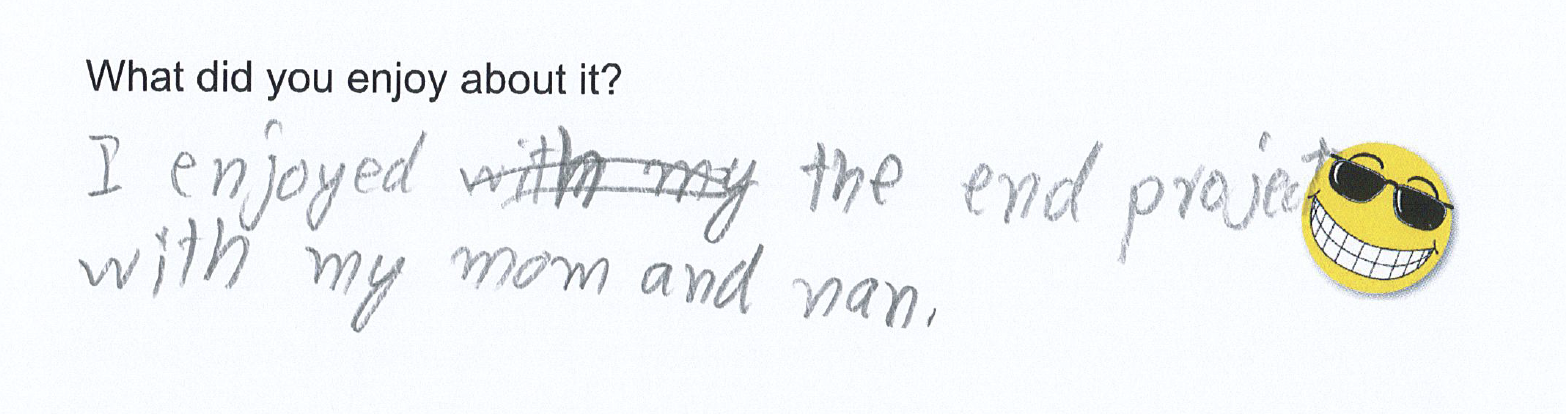 What did you enjoy about it?
I enjoyed with my the end project
with my mom and nan.